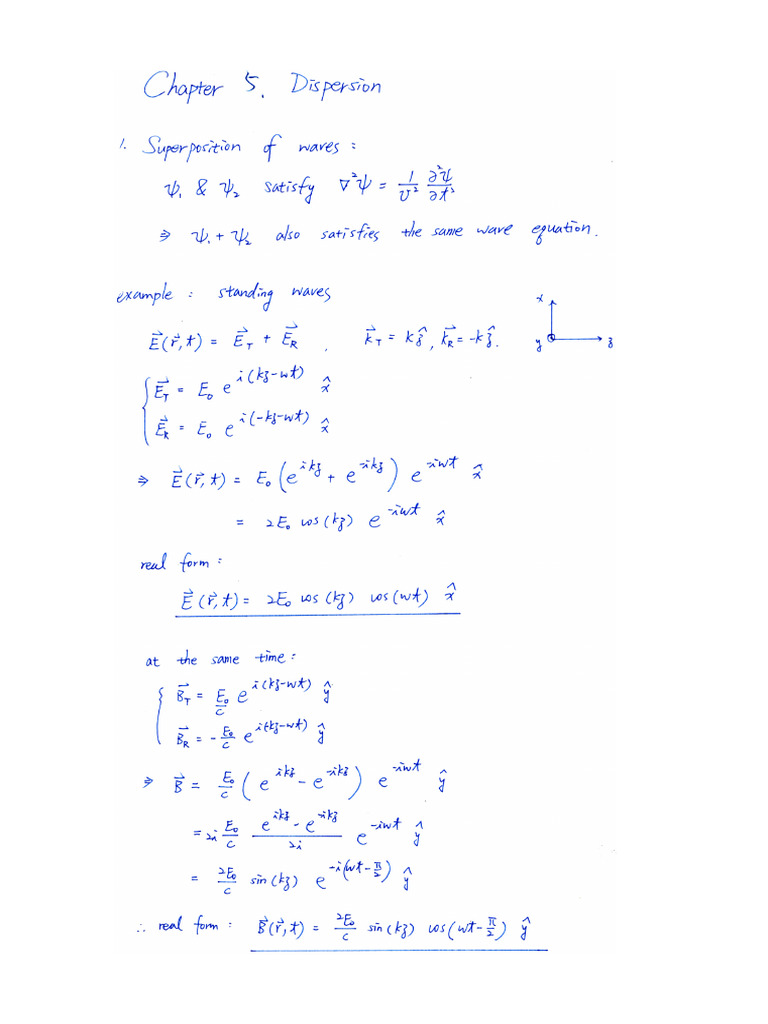 Chapter 5. Dispersion
1. Superposition of waves :
ψ₁ & ψ₂ satisfy ∇²ψ = 1/v² ∂²ψ/∂t²
⇒ ψ₁ + ψ₂ also satisfies the same wave equation.
example : standing waves
E⃗(r⃗,t) = E⃗_T + E⃗_R , k⃗_T = kẑ, k⃗_R = -kẑ.
x
y z
{ E⃗_T = E₀ e^{i(kz-ωt)} x̂
E⃗_R = E₀ e^{i(-kz-ωt)} x̂
⇒ E⃗(r⃗,t) = E₀ (e^{ikz} + e^{-ikz}) e^{-iωt} x̂
= 2E₀ cos(kz) e^{-iωt} x̂
real form :
E⃗(r⃗,t) = 2E₀ cos(kz) cos(ωt) x̂
at the same time :
{ B⃗_T = E₀/c e^{i(kz-ωt)} ŷ
B⃗_R = -E₀/c e^{i(-kz-ωt)} ŷ
⇒ B⃗ = E₀/c (e^{ikz} - e^{-ikz}) e^{-iωt} ŷ
= 2i E₀/c (e^{ikz} - e^{-ikz})/2i e^{-iωt} ŷ
= 2E₀/c sin(kz) e^{-i(ωt-π/2)} ŷ
∴ real form : B⃗(r⃗,t) = 2E₀/c sin(kz) cos(ωt-π/2) ŷ